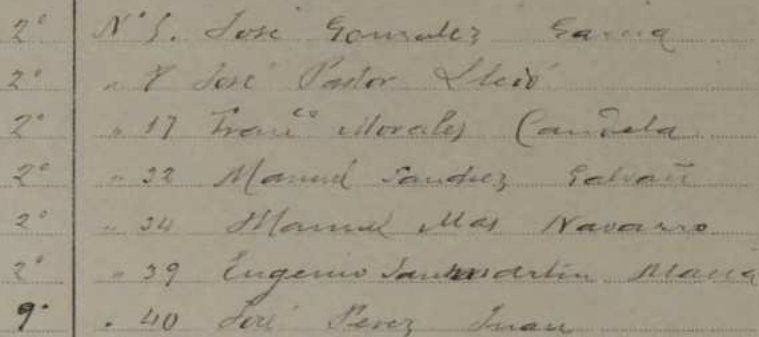 2º Nº 5. José Gonzalez Garcia
2º " 8 José Pastor Lledó
2º " 17 Franco Morales Candela
2º " 32 Manuel Sanchez Galvañ
2º " 34 Manuel Mas Navarro
2º " 39 Eugenio Sanmartin Maciá
9º " 40 José Perez Juan